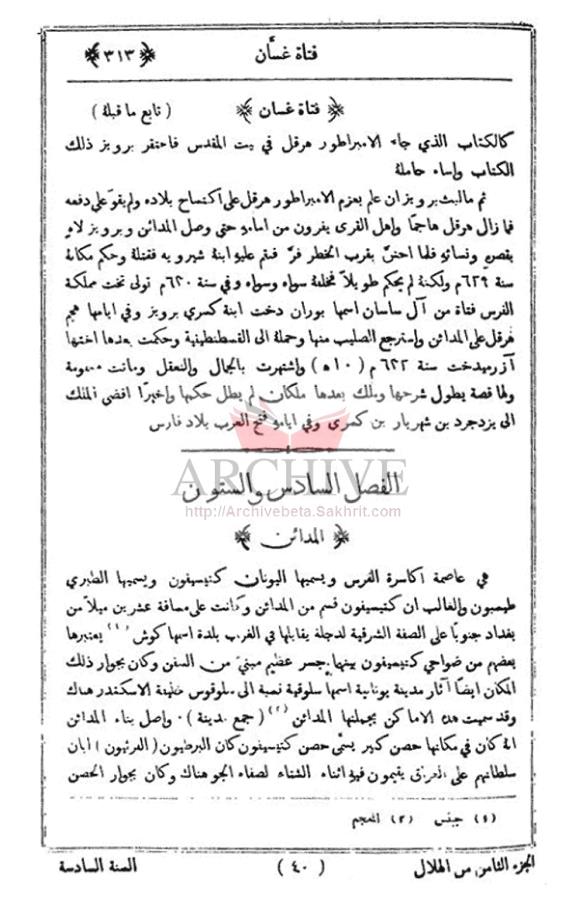 فتاة غسان ﴿٣١٣﴾
﴿ فتاة غسان ﴾ ( تابع ما قبلة )
كالكتاب الذي جاء الامبراطور هرقل في بيت المقدس فاحتقر برويز ذلك
الكتاب واساء حاملة
ثم مالبث برويز ان علم بعزم الامبراطور هرقل على اكتساح بلاده ولم يقو على دفعه
فما زال هرقل هاجمًا واهل القرى يفرون من امامه حتى وصل المدائن وبرويز لاهٍ
بقصره ونسائه فلما احسَّ بقرب الخطر فرَّ فنقم عليه ابنة شيرويه فقتلة وحكم مكانة
سنة ٦٢٩م ولكنة لم يحكم طويلًا فخلفة سواه وسواه وفي سنة ٦٣٠م تولى تخت مملكة
الفرس فتاة من آل ساسان اسمها بوران دخت ابنة كسرى برويز وفي ايامها هجم
هرقل على المدائن واسترجع الصليب منها وحملة الى القسطنطينية وحكمت بعدها اختها
آزرميدخت سنة ٦٣٢م (١٠ﻫ) واشتهرت بالجمال والتعقل وماتت مسمومة
ولها قصة يطول شرحها وملك بعدها ملكان لم يطل حكمها واخيرًا افضى الملك
الى يزدجرد بن شهريار بن كسرى وفي ايامه فتح العرب بلاد فارس
ARCHIVE
http://Archivebeta.Sakhrit.com
الفصل السادس والستون
﴿ المدائن ﴾
هي عاصمة اكاسرة الفرس ويسميها اليونان كتيسيفون ويسميها الطبري
طيسبون والغالب ان كتيسيفون قسم من المدائن وكانت على مسافة عشرين ميلًا من
بغداد جنوبًا على الضفة الشرقية لدجلة يقابلها في الغرب بلدة اسمها كوش (١) يعتبرها
بعضهم من ضواحي كتيسيفون بينها جسر عظيم مبنيٌّ من السفن وكان بجوار ذلك
المكان ايضًا آثار مدينة يونانية اسمها سلوقية نسبة الى سلوقوس خليفة الاسكندر هناك
وقد سميت هذه الاماكن بجملتها المدائن (٢) ( جمع مدينة ) . واصل بناء المدائن
انة كان في مكانها حصن كبير يسمَّى حصن كتيسيفون كان البرطيون (الفرثيون) ابان
سلطانهم على العراق يقيمون فيه اثناء الشتاء لصفاء الجو هناك وكان بجوار الحصن
(١) جبنس (٢) المعجم
الجزء الثامن من الهلال (٤٠) السنة السادسة